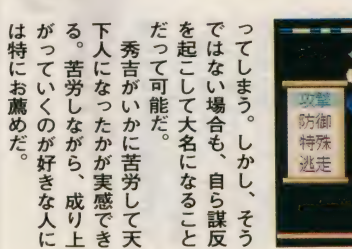 ってしまう。しかし、そう
ではない場合も、自ら謀反
を起こして大名になること
だって可能だ。
　秀吉がいかに苦労して天
下人になったかが実感でき
る。苦労しながら、成り上
がっていくのが好きな人に
は特にお薦めだ。
攻撃
防御
特殊
逃走